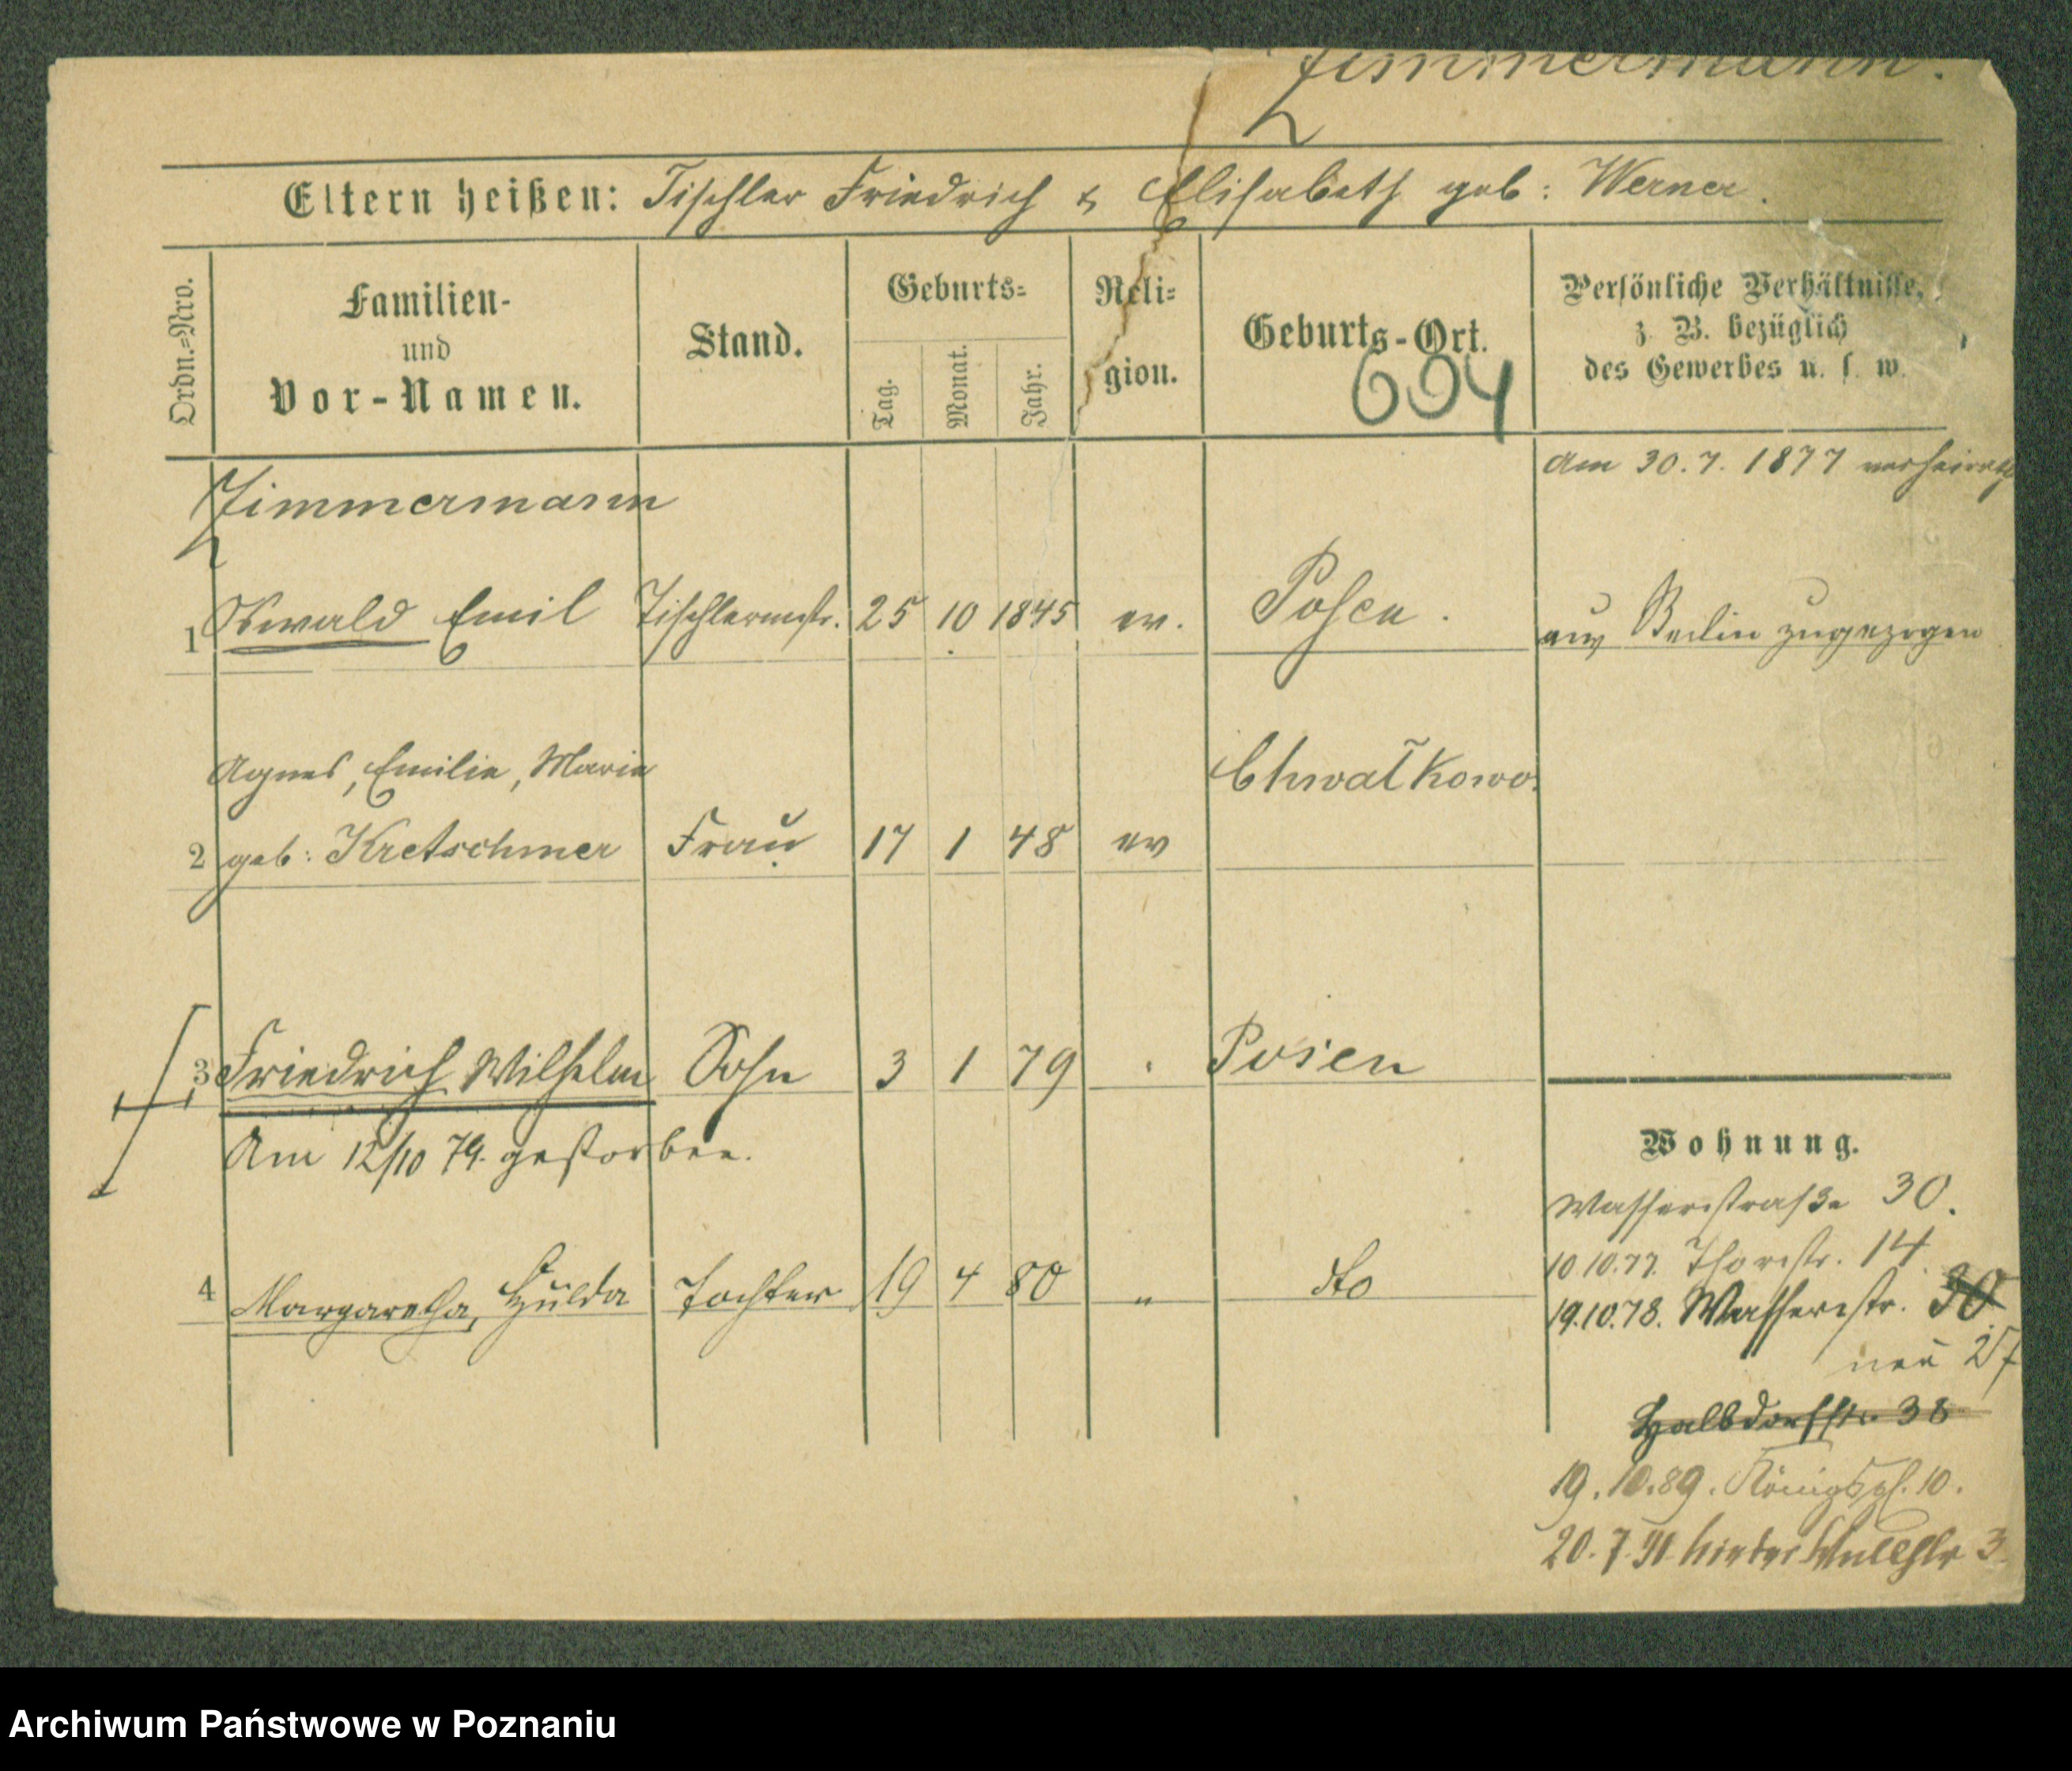 Zimmermann.
Eltern heißen: Tischler Friedrich & Elisabeth geb: Werner.
Ordn.=Nro.
Familien-
und
Vor-Namen.
Stand.
Geburts=
Tag.
Monat.
Jahr.
Reli=
gion.
Geburts-Ort.
694
Persönliche Verhältnisse,
z. B. bezüglich
des Gewerbes u. s. w.
Am 30.7.1877 verheirath
Zimmermann
1 Oswald Emil Tischlermstr. 25 10 1845 ev. Posen. aus Berlin zugezogen
Agnes, Emilie, Marie Chwałkowo.
2 geb: Kretschmer Frau 17 1 48 ev
3 Friedrich Wilhelm Sohn 3 1 79 Posen
Am 12/10 79. gestorben.
4 Margaretha, Hulda Tochter 19 4 80 " dto
Wohnung.
Wasserstraße 30.
10.10.77. Thorstr. 14
19.10.78. Wasserstr. 30
neu 27
Halbdorfstr. 38
19.10.89. Königspl. 10.
20.7.91 3
Archiwum Państwowe w Poznaniu